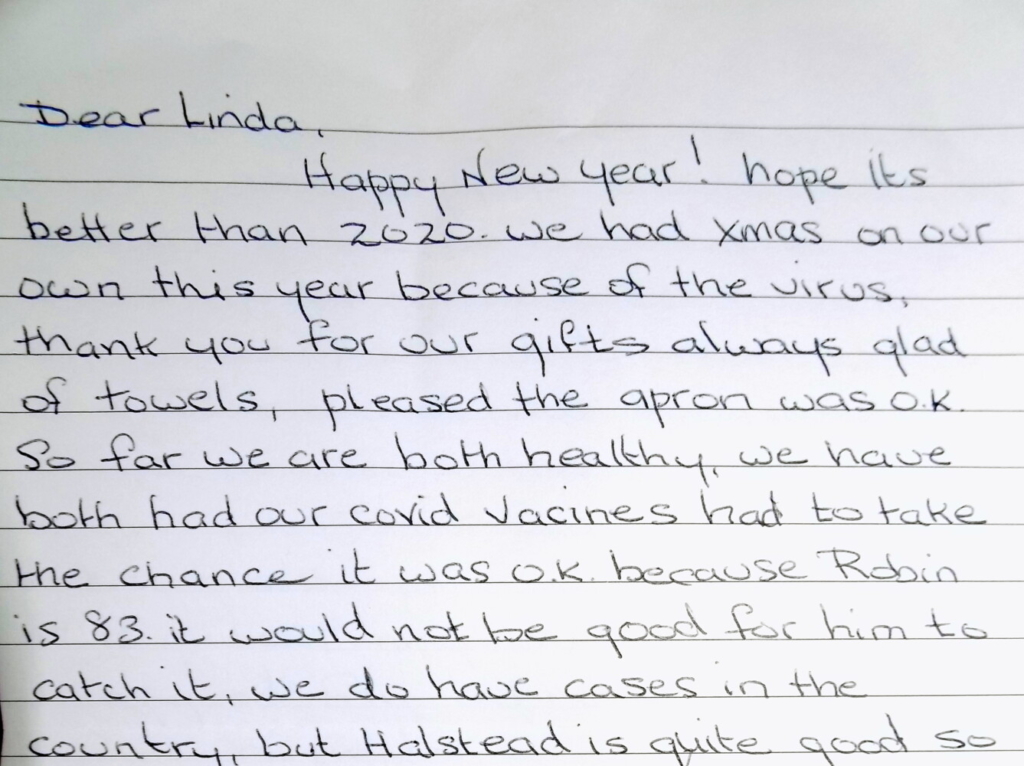 Dear Linda,
Happy New year! hope its
better than 2020. we had xmas on our
own this year because of the virus,
thank you for our gifts always glad
of towels, pleased the apron was o.k.
So far we are both healthy, we have
both had our covid vacines had to take
the chance it was o.k. because Robin
is 83. it would not be good for him to
catch it, we do have cases in the
country, but Halstead is quite good so